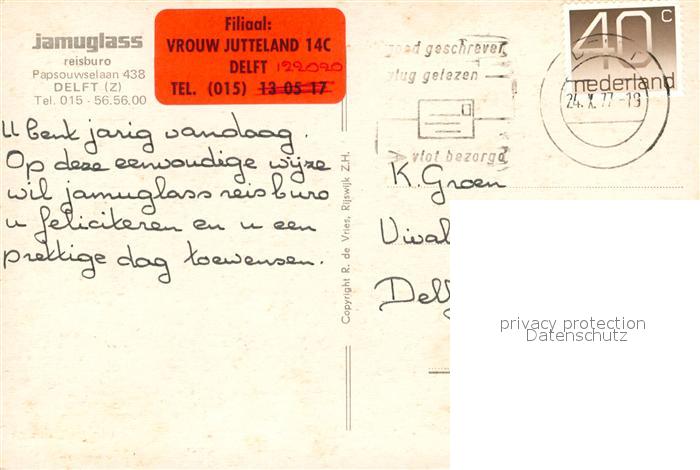 jamuglass
reisburo
Papsouwselaan 438
DELFT (Z)
Tel. 015 - 56.56.00
Filiaal:
VROUW JUTTELAND 14C
DELFT 122020
TEL. (015) 13 05 17
U bent jarig vandaag.
Op deze eenvoudige wijze
wil jamuglass reisburo
u feliciteren en u een
prettige dag toewensen.
Copyright R. de Vries, Rijswijk Z.H.
goed geschreven
vlug gelezen
vlot bezorgd
40 c
nederland
24.X.77-19
K. Groen
Vival
Delf
privacy protection
Datenschutz